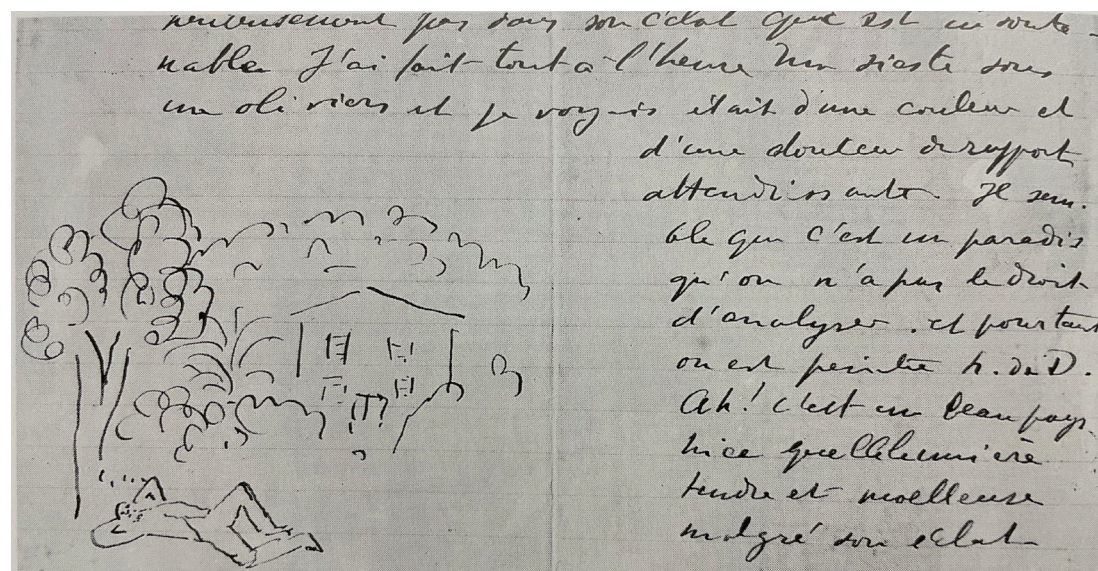 pas dans son éclat qui est insoute-
nable J'ai fait tout à l'heure une sieste sous
un oliviers et je voyais était d'une couleur et
d'une douceur de rapport
attendrissante. Il sem.
ble que c'est un paradis
qu'on n'a pas le droit
d'analyser. et pourtant
on est peintre N. de D.
Ah! c'est un beau pays
Nice quelle lumière
tendre et moelleuse
malgré son éclat